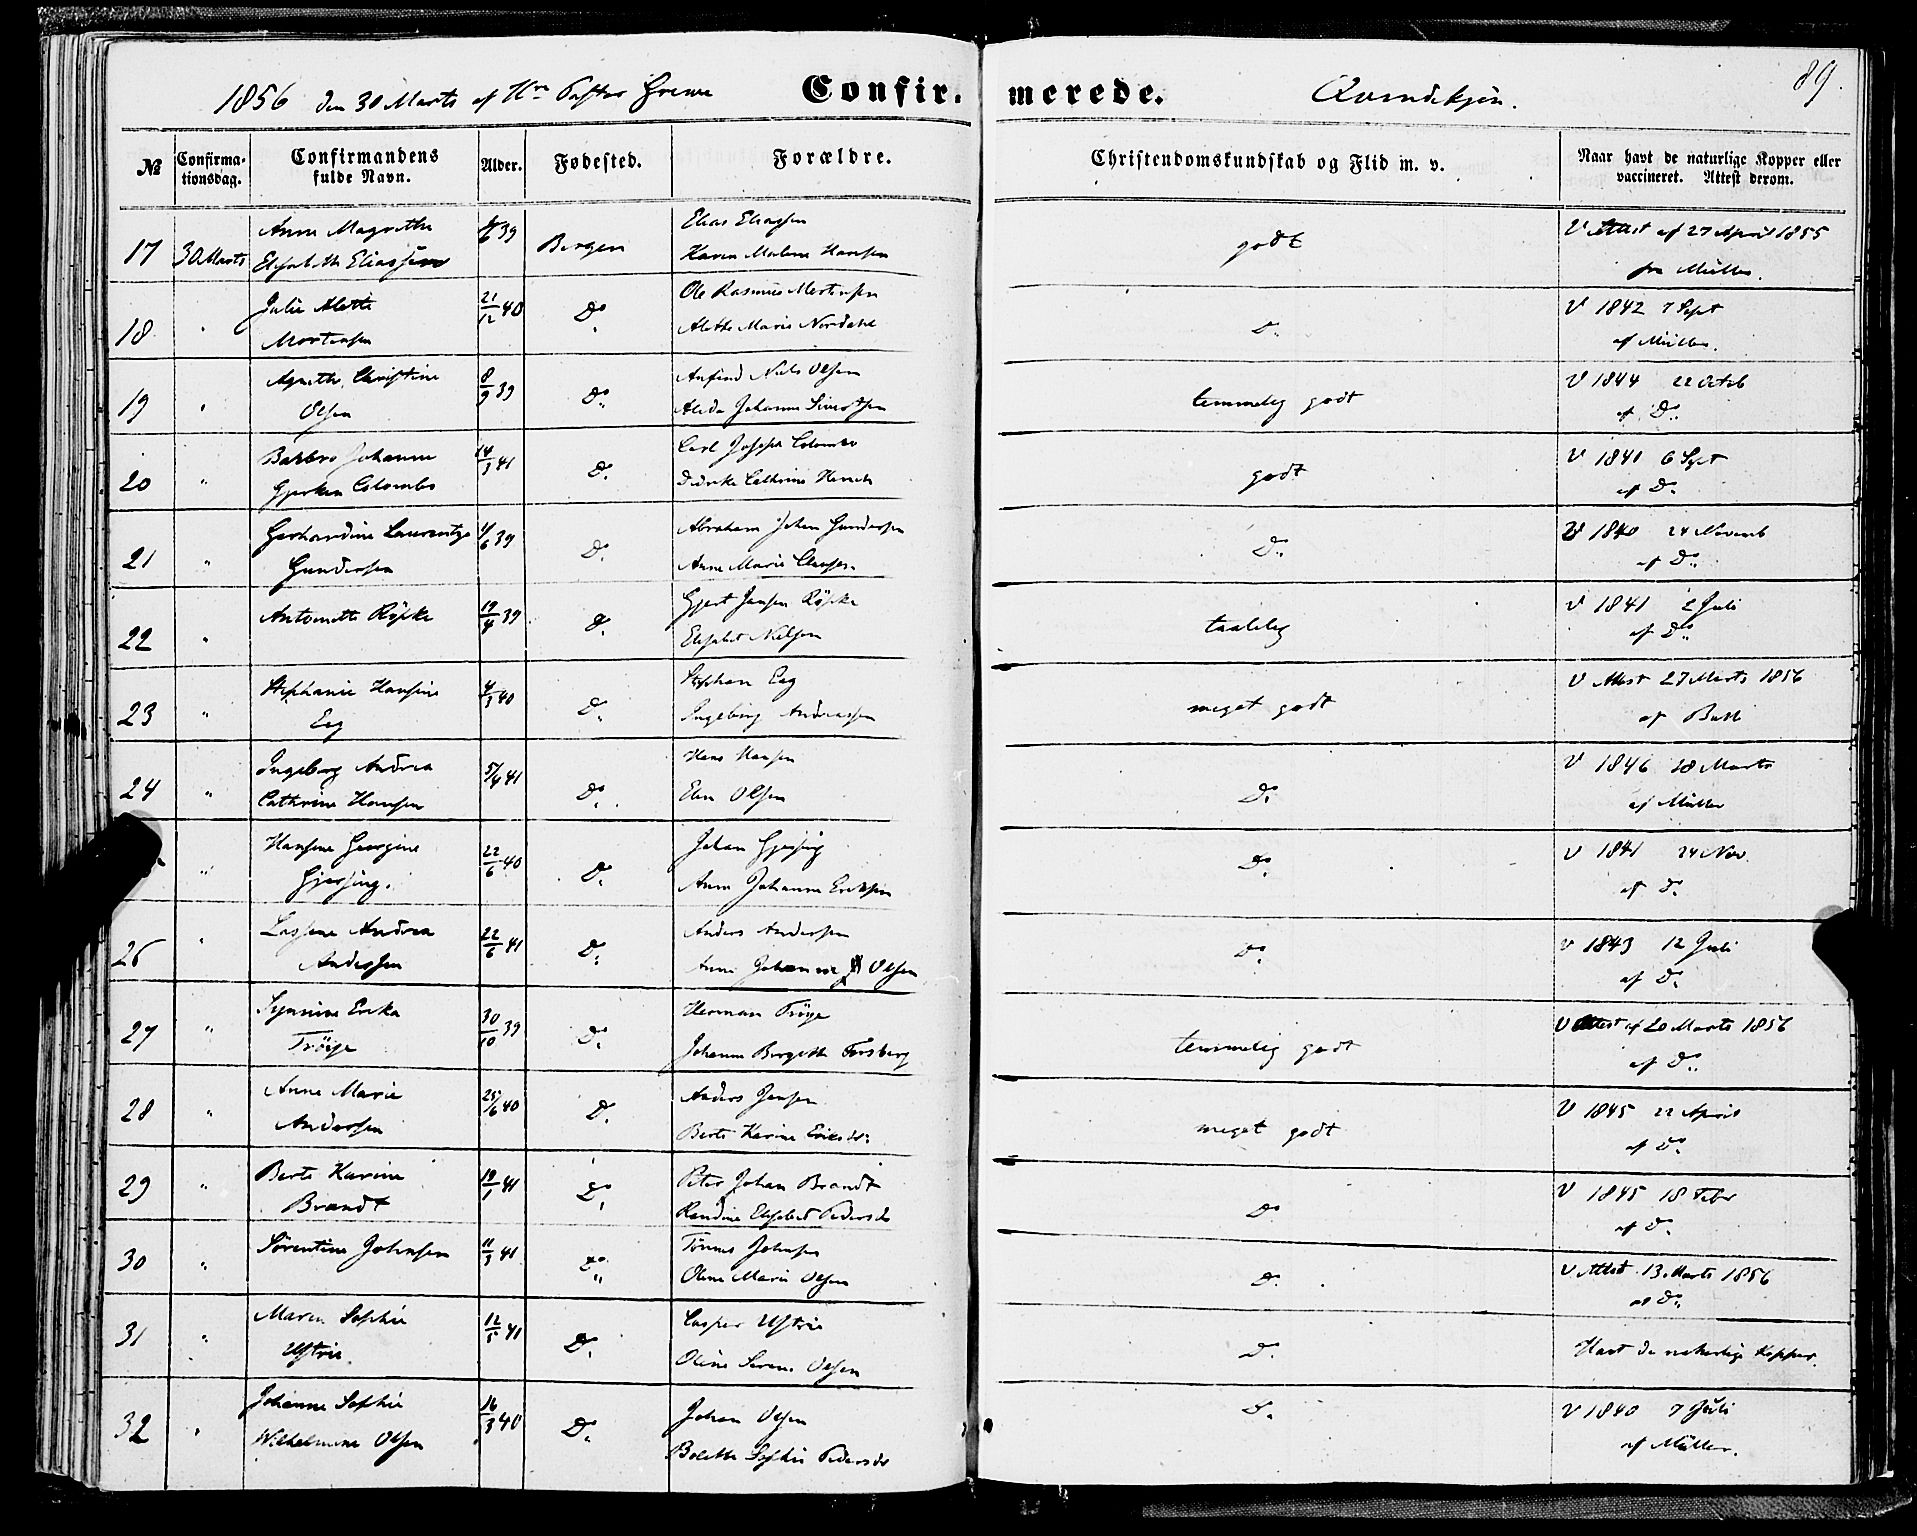 1856 den 30 Marts af Hr. Pastor Grewe Confirmerede. Qvindekjøn. 89.
№ Confirmationsdag. Confirmandens fulde Navn. Alder. Fødested. Forældre. Christendomskundskab og Flid m. v. Naar havt de naturlige Kopper eller vaccineret. Attest derom.
17 30 Marts Anne Magrethe 39 Bergen Elias Eliassen godt V Attest af 27 April 1855
Elisabeth Eliassen Karen Malene Hansen fra Müller.
18 " Julie Alette 21/12 40 Do Ole Rasmus Mortensen Do V 1842 7 Sept
Mortensen Alette Marie Nordahl af Müller.
19 " Agnethe Christine 8/9 39 Do Anfind Niels Olsen temmelig godt V 1844 22 Octob
Olsen Alida Johanne Sivertsen af Do
20 " Barbro Johanne 14/3 41 Do Carl Joseph Colombo godt V 1841 6 Sept
Gjerken Colombo Didrikke Cathrine af Do
21 " Gerhardine Laurentze 11/6 39 Do Abraham Johan Gundersen Do V 1840 24 Novemb
Gundersen Anne Marie Clausen af Do
22 " Antonette Röpke 19/4 39 Do Gjert Jansen Röpke taalelig V 1841 2 Juli
Elisabet Nilsen af Do
23 " Stephanie Hansine 4/3 40 Do Stephan Eeg meget godt V Attest 27 Marts 1856
Eeg Ingeborg Andreassen af Bull
24 " Ingeborg Andrea 5/4 41 Do Hans Hansen Do V 1846 18 Marts
Cathrine Hansen Elen Olsen af Müller
" Hansine Georgine 22/6 40 Do Johan Gjersing Do V 1841 24 Nov.
Gjersing. Anne Johanne Eriksen af Do
26 " Lassine Andrea 22/6 41 Do Anders Andersen Do V 1843 12 Juli
Andersen Anne Johanne Olsen af Do
27 " Synnine Erika 30/10 39 Do Herman Tröye temmelig godt V Attest af 20 Marts 1856
Tröye Johanne Birgitte Forsberg af Do
28 " Anne Marie 25/6 40 Do Anders Jensen meget godt V 1845 22 April
Andersen Berte Karine Eriksdr af Do
29 " Berte Karine 19/1 41 Do Peter Johan Brandt Do V 1845 18 Febr
Brandt Randine Elisabet Pedersdr af Do
30 " Sörentine Johnsen 11/3 41 Do Tönnes Johnsen Do V Attest 13 Marts 1856
Oline Marie Olsen af Do
31 " Maren Sophie 12/1 41 Do Casper Ystrie Do Havt de naturlige Kopper.
Ystrie Oline Olsen
32 " Johanne Sophie 16/3 40 Do Johan Olsen Do V 1840 7 Juli
Wilhelmine Olsen Bolette Sophie Pedersdr af Müller.